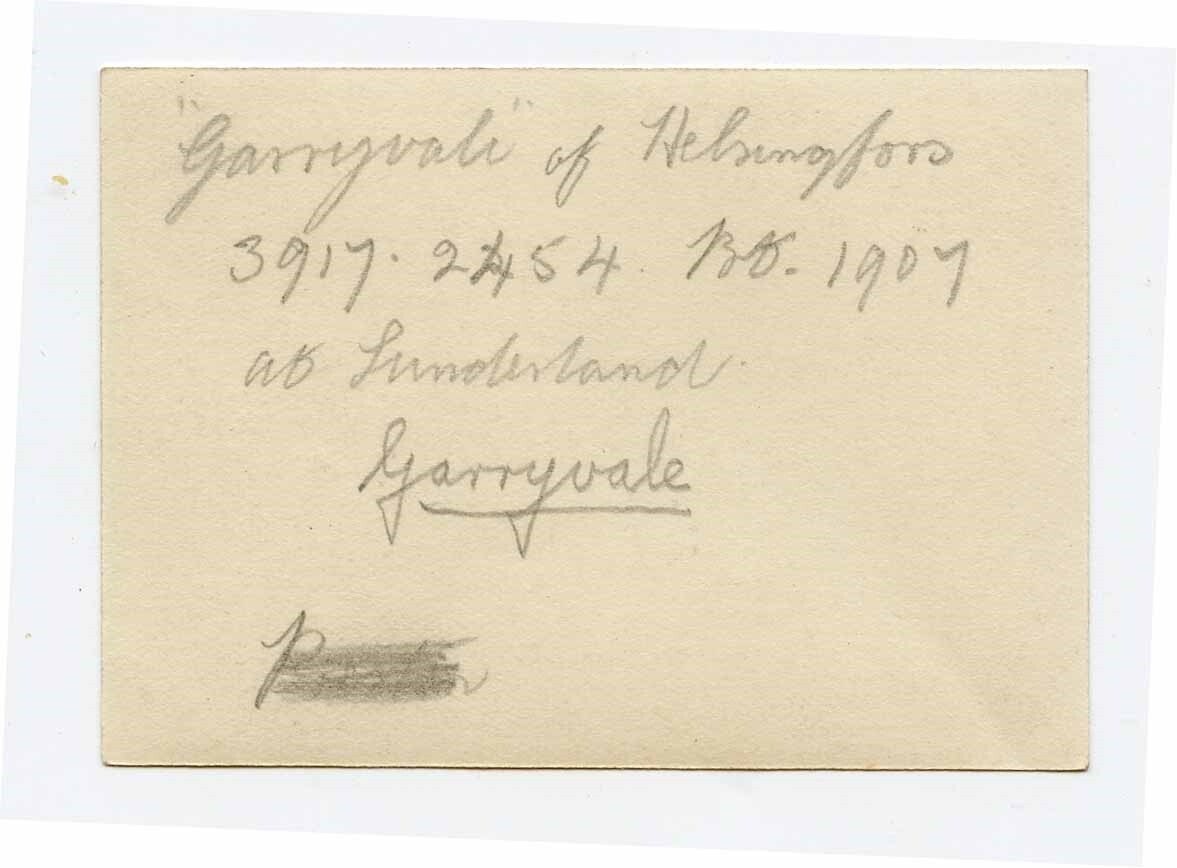 "Garryvale" of Helsingfors
3917. 2454. Bt. 1907
at Sunderland.
Garryvale